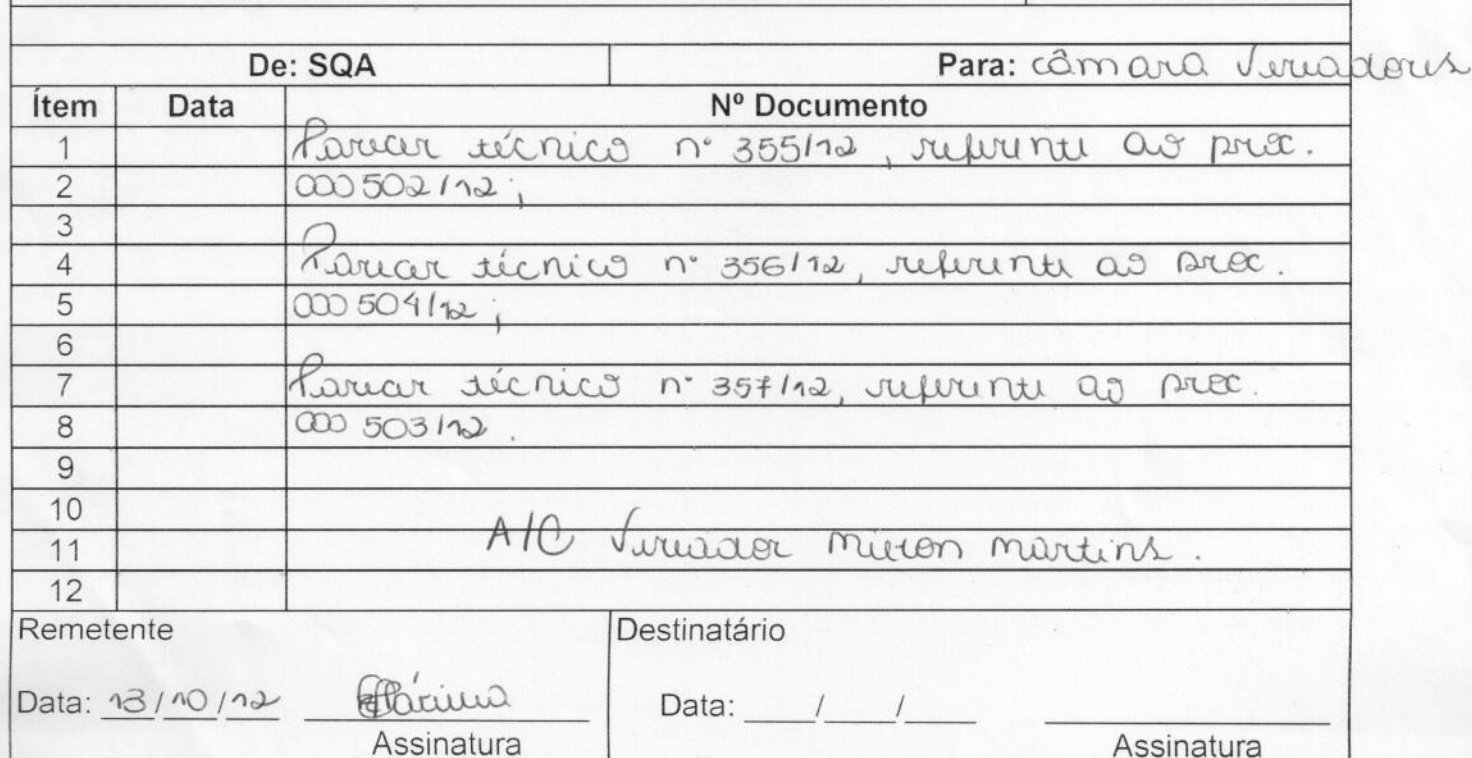 De: SQA Para: câmara Vereadores
Ítem Data Nº Documento
1 Parecer técnico nº 355/12, referente ao proc.
2 000502/12;
3
4 Parecer técnico nº 356/12, referente ao proc.
5 000504/12;
6
7 Parecer técnico nº 357/12, referente ao proc.
8 000503/12.
9
10
11 A/C Vereador Milton martins.
12
Remetente Destinatário
Data: 13/10/12 Data: ___/___/___
Assinatura Assinatura